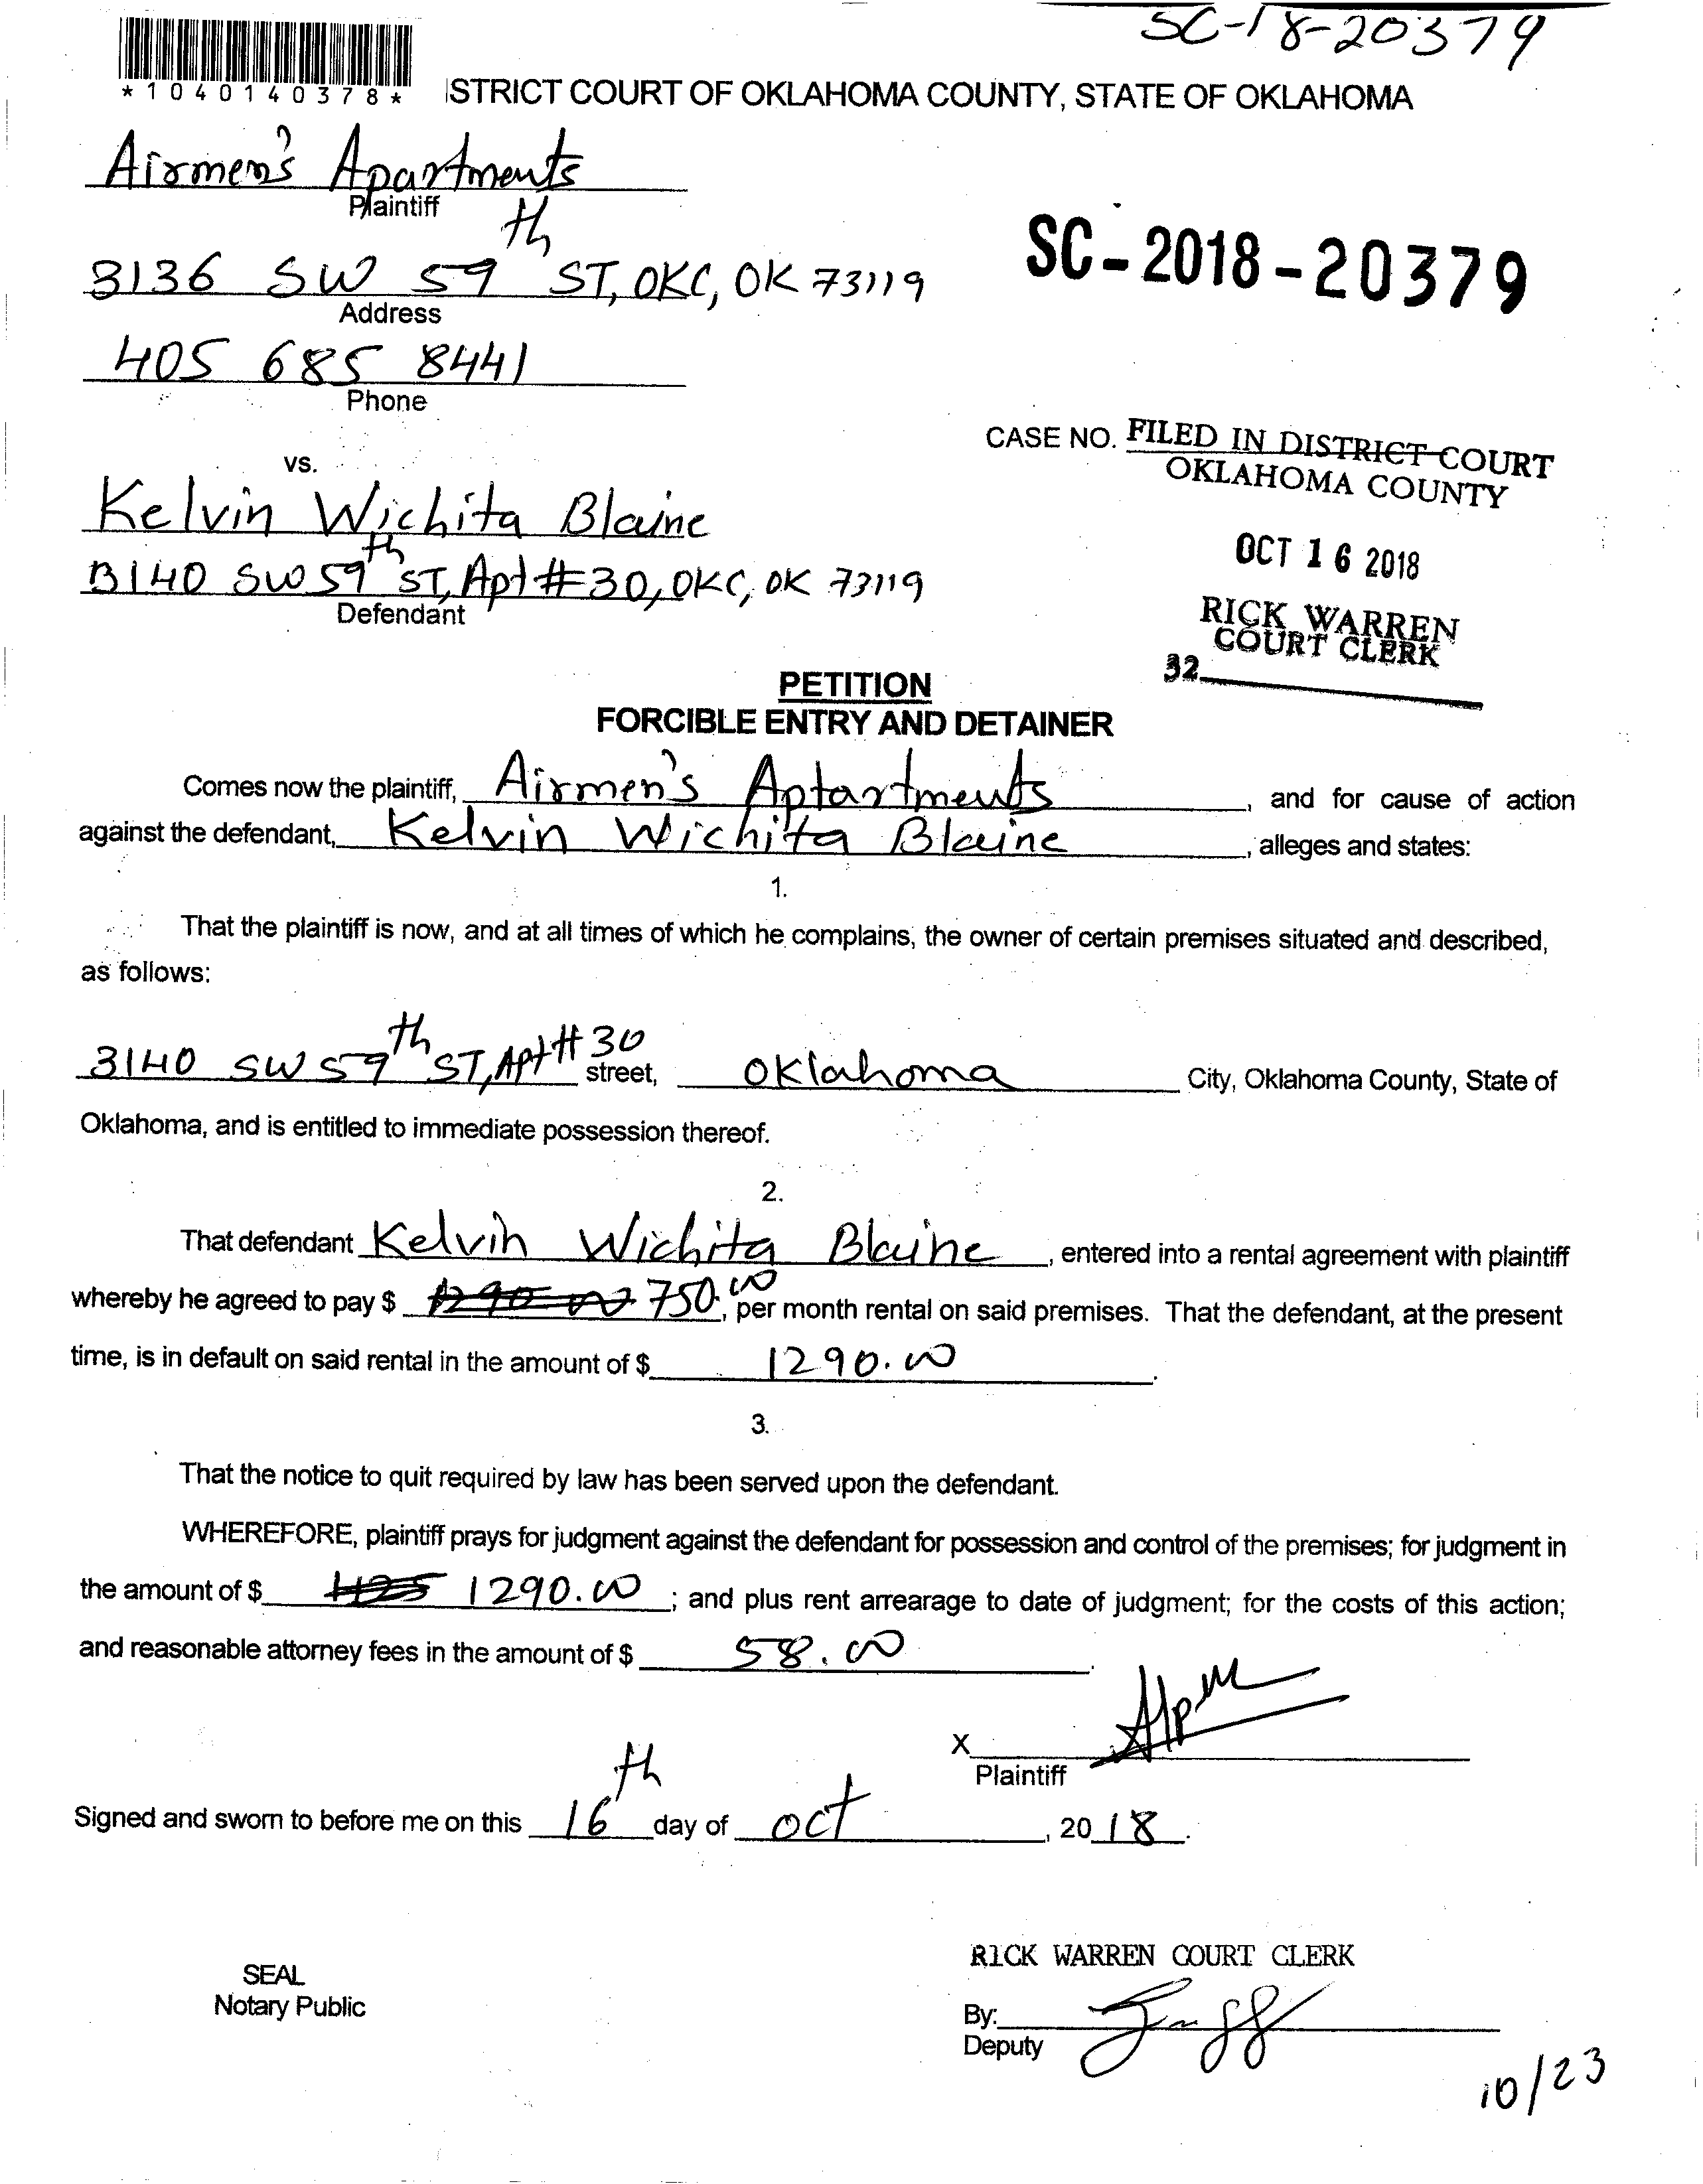 SC-18-20379
*1040140378*
ISTRICT COURT OF OKLAHOMA COUNTY, STATE OF OKLAHOMA
Airmen's Apartments
Plaintiff
3136 SW 59th ST, OKC, OK 73119
Address
SC-2018-20379
405 685 8441
Phone
CASE NO. FILED IN DISTRICT COURT
OKLAHOMA COUNTY
vs.
Kelvin Wichita Blaine
3140 SW 59th ST, Apt #30, OKC, OK 73119
Defendant
OCT 16 2018
RICK WARREN
COURT CLERK
32
PETITION
FORCIBLE ENTRY AND DETAINER
Comes now the plaintiff, Airmen's Aptartments, and for cause of action
against the defendant, Kelvin Wichita Blaine, alleges and states:
1.
That the plaintiff is now, and at all times of which he complains, the owner of certain premises situated and described,
as follows:
3140 SW 59th ST, Apt # 30 street, Oklahoma City, Oklahoma County, State of
Oklahoma, and is entitled to immediate possession thereof.
2.
That defendant Kelvin Wichita Blaine, entered into a rental agreement with plaintiff
whereby he agreed to pay $ 1290.00 750.00, per month rental on said premises. That the defendant, at the present
time, is in default on said rental in the amount of $ 1290.00.
3.
That the notice to quit required by law has been served upon the defendant.
WHEREFORE, plaintiff prays for judgment against the defendant for possession and control of the premises; for judgment in
the amount of $ 1290.00; and plus rent arrearage to date of judgment; for the costs of this action;
and reasonable attorney fees in the amount of $ 58.00.
X
Plaintiff
Signed and sworn to before me on this 16th day of Oct, 2018.
RICK WARREN COURT CLERK
SEAL
Notary Public
By:
Deputy
10/23